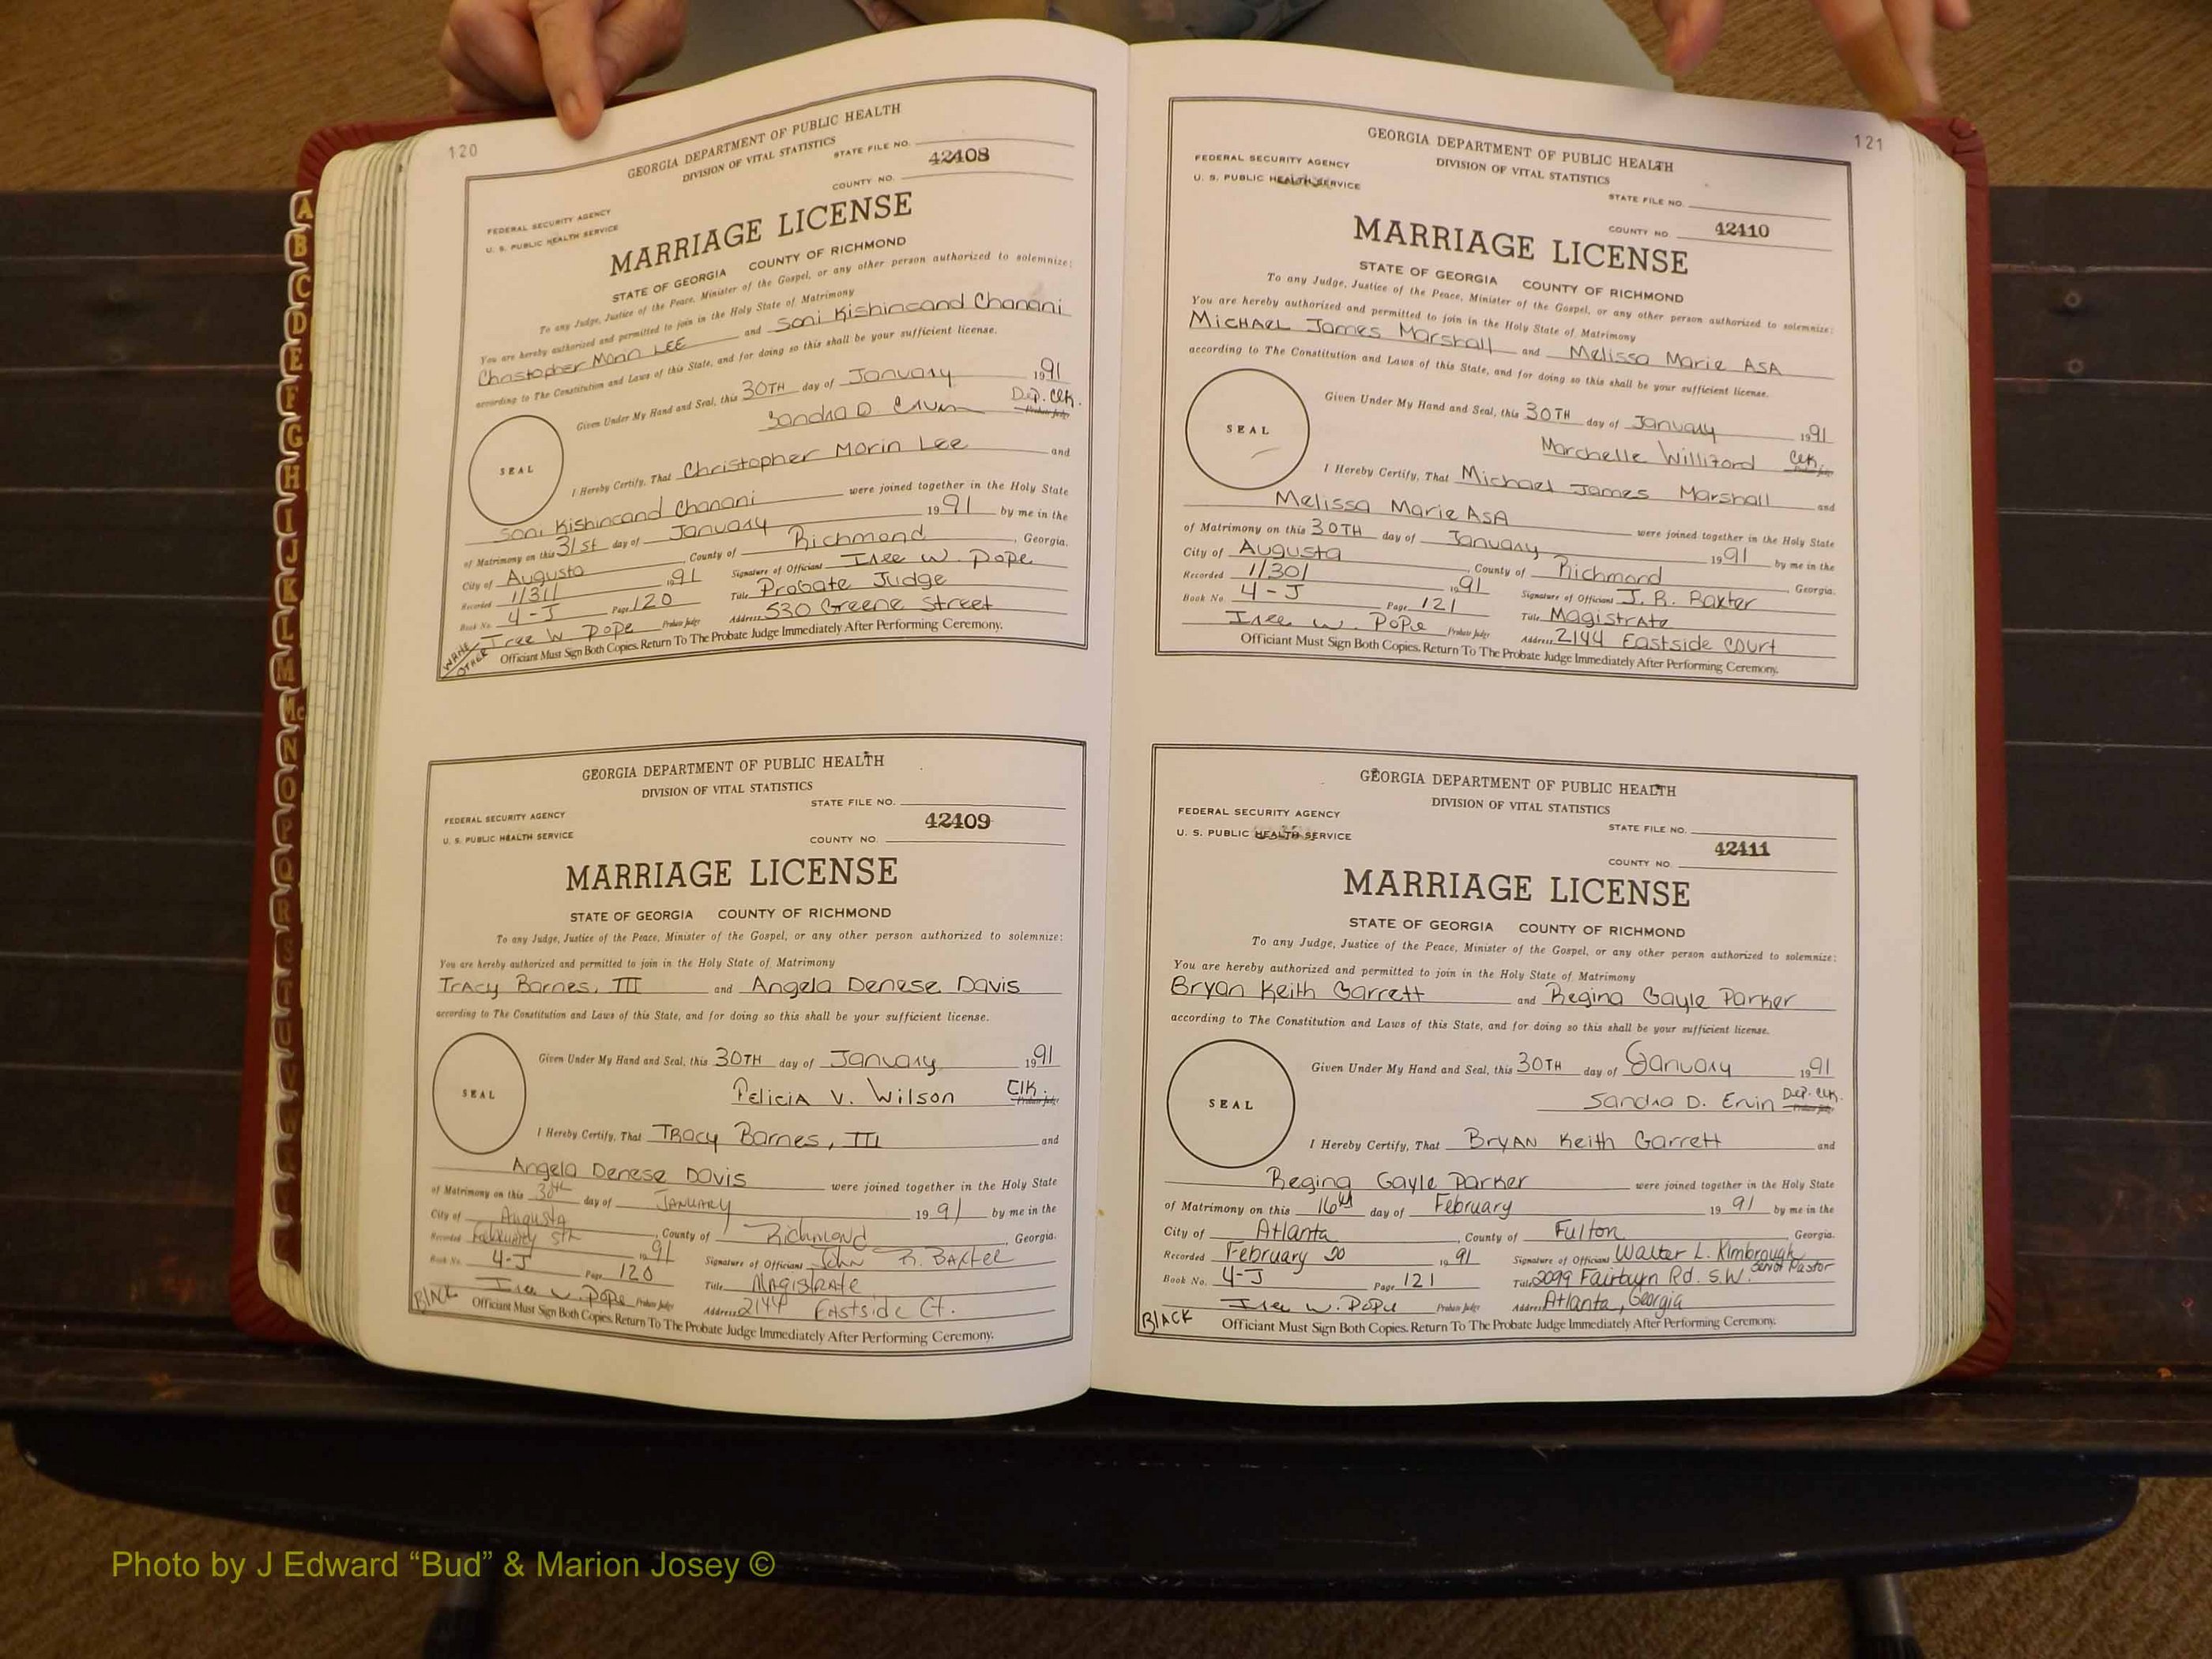 120
GEORGIA DEPARTMENT OF PUBLIC HEALTH
DIVISION OF VITAL STATISTICS
STATE FILE NO.
42408
COUNTY NO.
FEDERAL SECURITY AGENCY
U. S. PUBLIC HEALTH SERVICE
MARRIAGE LICENSE
STATE OF GEORGIA COUNTY OF RICHMOND
To any Judge, Justice of the Peace, Minister of the Gospel, or any other person authorized to solemnize:
You are hereby authorized and permitted to join in the Holy State of Matrimony
Christopher Morin LEE and Soni Kishincand Chanani
according to The Constitution and Laws of this State, and for doing so this shall be your sufficient license.
Given Under My Hand and Seal, this 30TH day of January 1991
Sandra D. Ervin Dep. Clk. Probate Judge
SEAL
I Hereby Certify, That Christopher Morin Lee and
Soni Kishincand Chanani were joined together in the Holy State
of Matrimony on this 31st day of January 1991 by me in the
City of Augusta, County of Richmond, Georgia.
Recorded 1/31/ 1991 Signature of Officiant Isee W. Pope
Book No. 4-J Page 120 Title Probate Judge
Isee W Pope Probate Judge Address 530 Greene Street
WHITE/OTHER
Officiant Must Sign Both Copies. Return To The Probate Judge Immediately After Performing Ceremony.
GEORGIA DEPARTMENT OF PUBLIC HEALTH
DIVISION OF VITAL STATISTICS
STATE FILE NO.
FEDERAL SECURITY AGENCY
42409
U. S. PUBLIC HEALTH SERVICE
COUNTY NO.
MARRIAGE LICENSE
STATE OF GEORGIA COUNTY OF RICHMOND
To any Judge, Justice of the Peace, Minister of the Gospel, or any other person authorized to solemnize:
You are hereby authorized and permitted to join in the Holy State of Matrimony
Tracy Barnes, III and Angela Denese Davis
according to The Constitution and Laws of this State, and for doing so this shall be your sufficient license.
Given Under My Hand and Seal, this 30TH day of January 1991
Felicia V. Wilson Clk. Probate Judge
SEAL
I Hereby Certify, That Tracy Barnes, III and
Angela Denese Davis were joined together in the Holy State
of Matrimony on this 30th day of JANUARY 1991 by me in the
City of Augusta, County of Richmond, Georgia.
Recorded February 5th 1991 Signature of Officiant John R. Baxter
Book No. 4-J Page 120 Title Magistrate
Isee W. Pope Probate Judge Address 2144 Eastside Ct.
BLACK
Officiant Must Sign Both Copies. Return To The Probate Judge Immediately After Performing Ceremony.
121
GEORGIA DEPARTMENT OF PUBLIC HEALTH
DIVISION OF VITAL STATISTICS
FEDERAL SECURITY AGENCY
U. S. PUBLIC HEALTH SERVICE
STATE FILE NO.
COUNTY NO 42410
MARRIAGE LICENSE
STATE OF GEORGIA COUNTY OF RICHMOND
To any Judge, Justice of the Peace, Minister of the Gospel, or any other person authorized to solemnize:
You are hereby authorized and permitted to join in the Holy State of Matrimony
Michael James Marshall and Melissa Marie ASA
according to The Constitution and Laws of this State, and for doing so this shall be your sufficient license.
Given Under My Hand and Seal, this 30TH day of January 1991
Marchelle Williford Clk. Probate Judge
SEAL
I Hereby Certify, That Michael James Marshall and
Melissa Marie ASA were joined together in the Holy State
of Matrimony on this 30TH day of January 1991 by me in the
City of Augusta, County of Richmond, Georgia.
Recorded 1/30/ 1991 Signature of Officiant J. R. Baxter
Book No. 4-J Page 121 Title Magistrate
Isee W. Pope Probate Judge Address 2144 Eastside Court
Officiant Must Sign Both Copies. Return To The Probate Judge Immediately After Performing Ceremony.
GEORGIA DEPARTMENT OF PUBLIC HEALTH
DIVISION OF VITAL STATISTICS
FEDERAL SECURITY AGENCY
U. S. PUBLIC HEALTH SERVICE
STATE FILE NO.
42411
COUNTY NO.
MARRIAGE LICENSE
STATE OF GEORGIA COUNTY OF RICHMOND
To any Judge, Justice of the Peace, Minister of the Gospel, or any other person authorized to solemnize:
You are hereby authorized and permitted to join in the Holy State of Matrimony
Bryan Keith Garrett and Regina Gayle Parker
according to The Constitution and Laws of this State, and for doing so this shall be your sufficient license.
Given Under My Hand and Seal, this 30TH day of January 1991
Sandra D. Ervin Dep. Clk. Probate Judge
SEAL
I Hereby Certify, That Bryan Keith Garrett and
Regina Gayle Parker were joined together in the Holy State
of Matrimony on this 16th day of February 1991 by me in the
City of Atlanta, County of Fulton, Georgia.
Recorded February 20 1991 Signature of Officiant Walter L. Kimbrough
Senior Pastor
Book No. 4-J Page 121 Title 2099 Fairburn Rd. S.W.
Isee W. Pope Probate Judge Address Atlanta, Georgia
BLACK
Officiant Must Sign Both Copies. Return To The Probate Judge Immediately After Performing Ceremony.
A
B
C
D
E
F
G
H
I
J
K
L
M
Mc
N
O
P
Q
R
S
T
Photo by J Edward “Bud” & Marion Josey ©